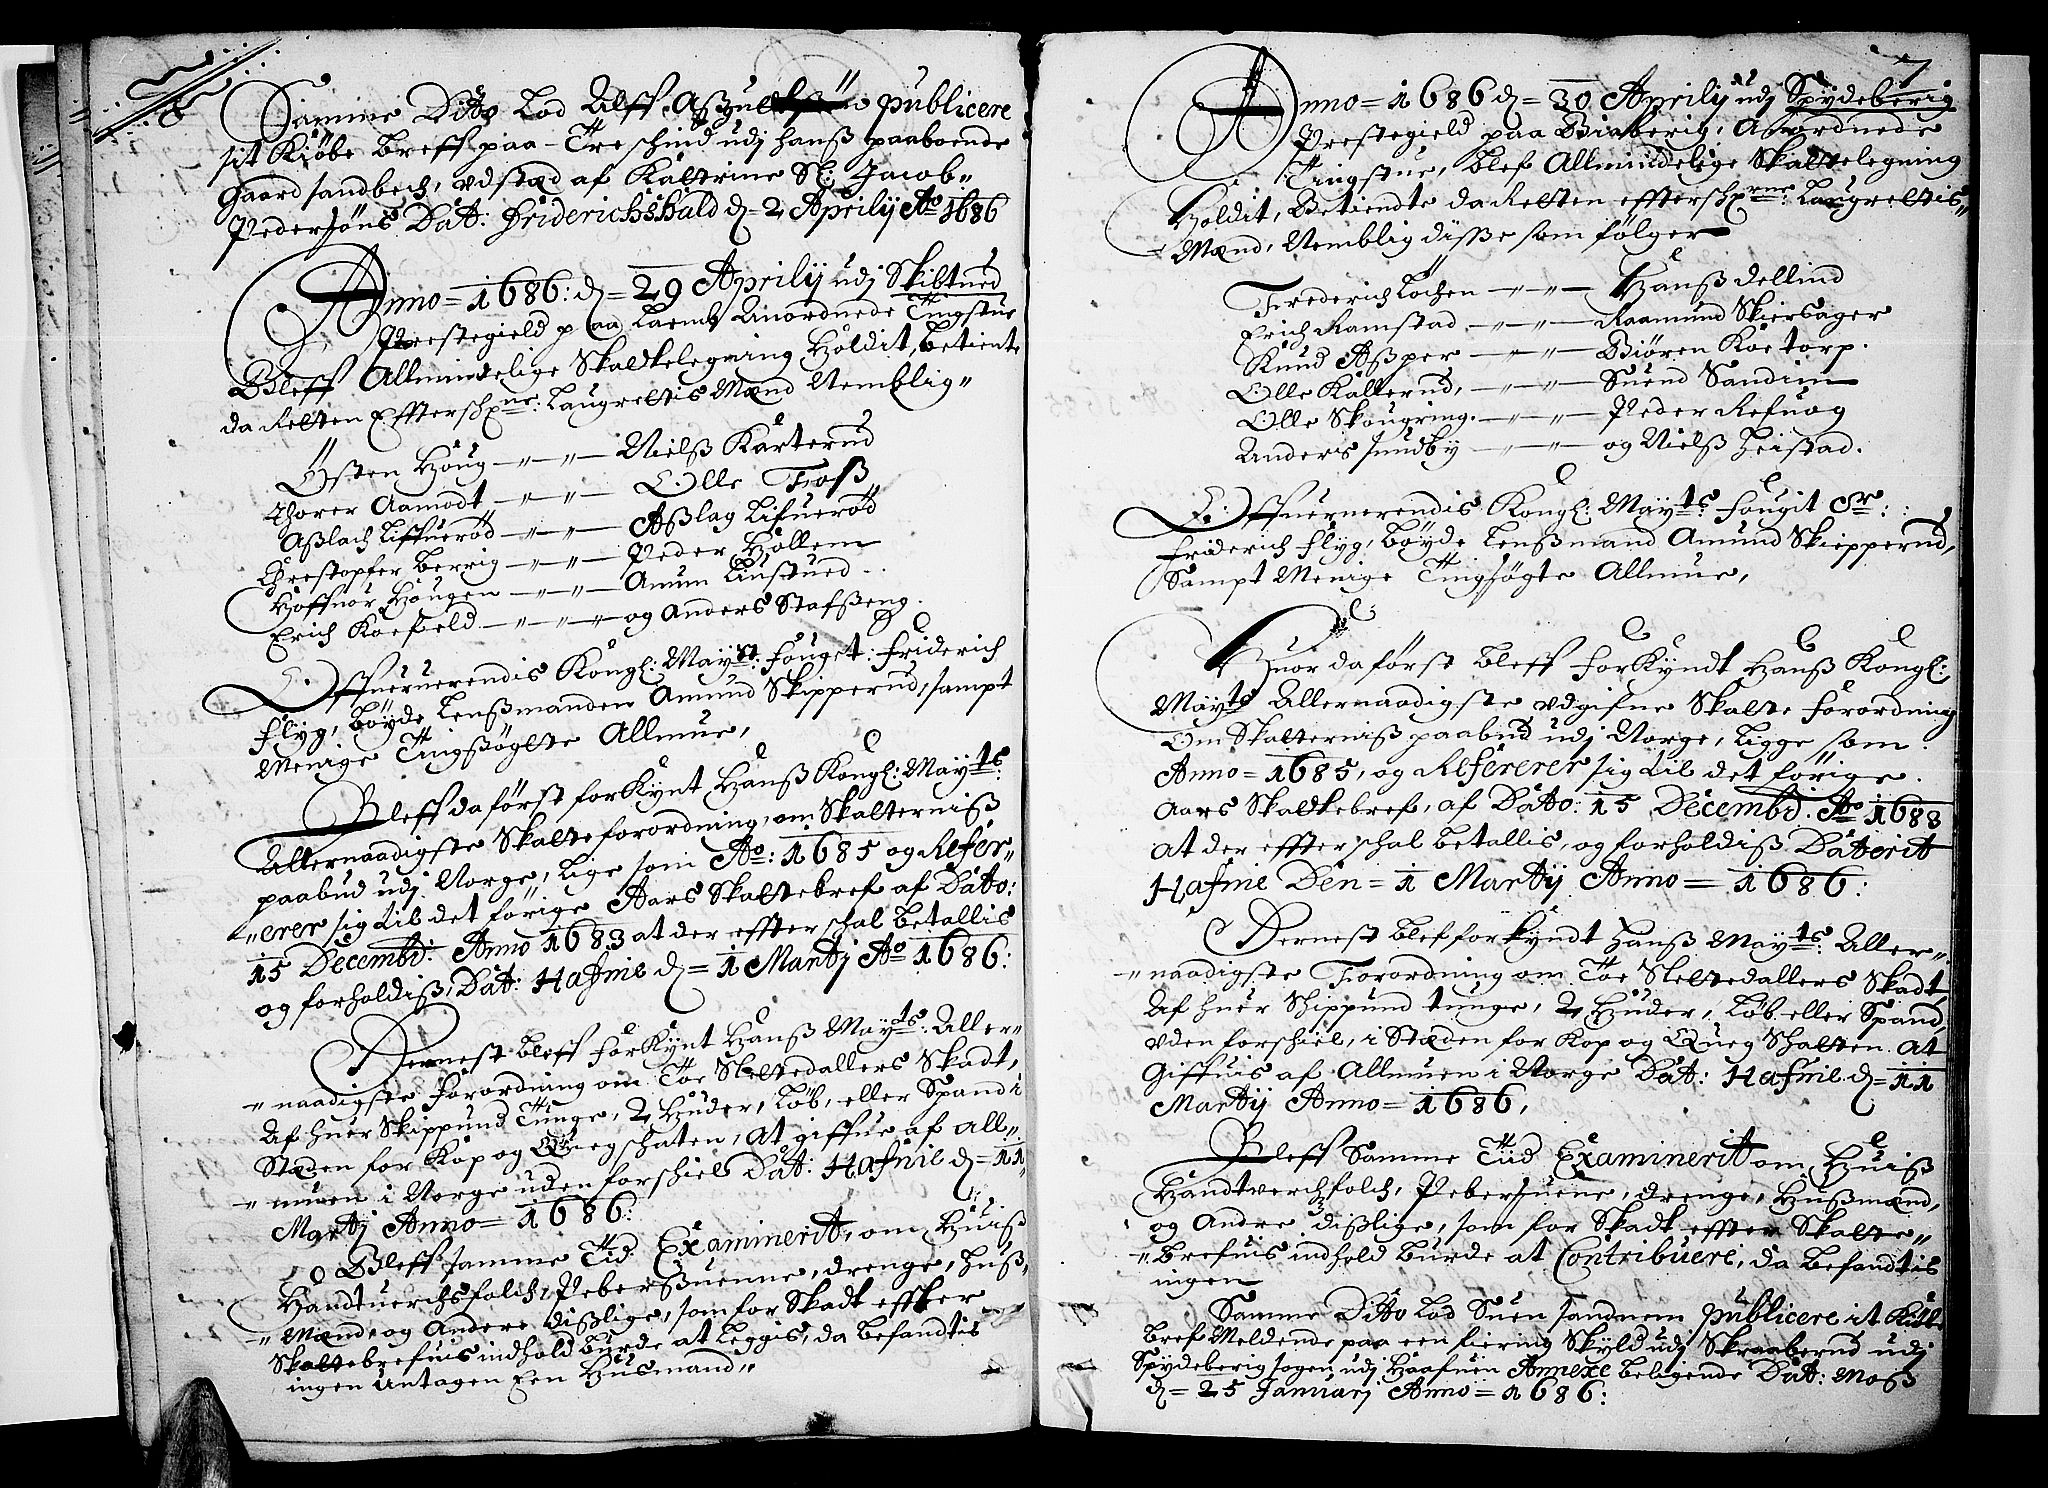 Samme Dito Lod Ulff Aszuelsøn publicere
sit Kiøbe breff paa - Treschind udj hanß paaboende
gaard sandbech, vdstæd af Kattrine Sl: Jacob
Pedersøns Dat: Friderichshald d= 2 Aprilÿ Ao 1686
Anno = 1686: d= 29 Aprilij udj Skibtued
Prestegield paa Laemb Anordnede Tingstue
Bleff Allmindelige Skattelegning Holdit, betiente
da Retten Effterschrne: Laugrettis Mænd Nemblig"
Østen Houg -"-"- Nielß Karterud
Thorer Aamodt -"-"- Olle Foß
Aßlach Liffuerød -"-"- Aßlag Lifuerød
Chrestopfer Berrig -"-"- Peder Hollem
Hoffuor Hougen -"-"- Amun Linstued
Erich Koefield -"-"-"- og Anders Stafßeng.
Offueruerendis Kongl: Mayst: Fouget: Friderich
Flÿg, Bøyde Lenßmanden Amund Skipperud, sampt
Menige Tingsøgte Allmue,
Bleff da først forkÿnt Hanß Kongl: Mayts:
Allernaadigste Skatteforordning, om Skatterniß
paabud udj Norge, lige som Ao: 1685 og Refer"
"erer sig til det førige Aars Skattebref af Dato:
15 Decembd: Anno 1683 at der effter schal betallis
og forholdiß, Dat: Hafnie d= 1 Martj Ao 1686:
Dernest bleff forkÿnt Hanß Mayts: Aller"
"naadigste forordning om Toe Slettedallers Skadt,
Af huer Skippund Tunge, 2 Huder, Løb, eller Spand i
Stæden for Kop og Quegschaten, at giffue af all"
"muen i Norge uden forschiel Dat: Hafnie d= 11
Martj Anno = 1686:
Bleff samme Tid Examinerit, om Huiß
Handtuerchsfolch, Peberßuenne, drenge, Huß"
"Mænd, og Andere dißlige, som for Skadt effter
Skattebrefuis indhold burde at leggis, da befandtis
ingen Untagen Een Husmand"
7
Anno = 1686 d= 30 Aprilij udj Spÿdeberig
Prestegield paa Biaberig, Anordnede
Tingstue, blef Allmindelige Skattelegning
Holdit, Betiente da Retten effterschrne: Laugrettis"
"Mænd, Nemblig diße som følger
Frederich Løchen -"-"- Hanß dellind
Erich Ramstad -"-"- Raamund Skiersager
Knud Aßper -"-"- Biøren Koetorp.
Olle Kallerud, -"-"- Suend Sandim
Olle Skougring. -"-"- Peder Refuog
Anderis sundbÿ -"-"- og Nielß Heistad.
Offueruerendis Kongl: Mayts: Fougit Sr::
Friderich Flÿg, Bøyde Lenßmand Amund Skipperud,
Sampt Menige Tingsøgte Allmue,
Huor da først bleff forkÿndt Hanß Kongl:
Mayts Allernaadigste udgifne Skatte Forordning
Om Skatterniß paabud udj Norge, ligge som
Anno = 1685, og Refererer sig til det førige
Aars Skattebref, af Dato: 15 Decembd. Ao 1683
at der effter schal betallis, og forholdiß Daterit
Hafnie Den = 1 Martÿ Anno = 1686:
Dernest blef forkÿndt Hanß Mayts: Aller"
"naadigste Forordning om Toe Slettedallers Skadt
Af huer Schippund tunge, 2 Huder, Løb eller Spand,
vden forschiel, i Stæden for Kop og Queg Schatten. At
Giffuis af Allmuen i Norge Dat: Hafnie d= 11
Martÿ Anno = 1686,
Bleff Samme Tid Examinerit om Huiß
Handtverchfolch, Pebersuene, drenge, Hußmænd,
og Andre dißlige, som for Skadt effter Skatte"
"brefuis indhold burde at Contribuere, da befandtis
ingen
Samme Dito Lod Suen sandnem publicere it
bref Meldende paa een fiering Skÿld udj Skraaberud udj
Spÿdeberig sogen udj Haafuen Annexe beligende Dat: Moß
d= 25 Januarj Anno = 1686: